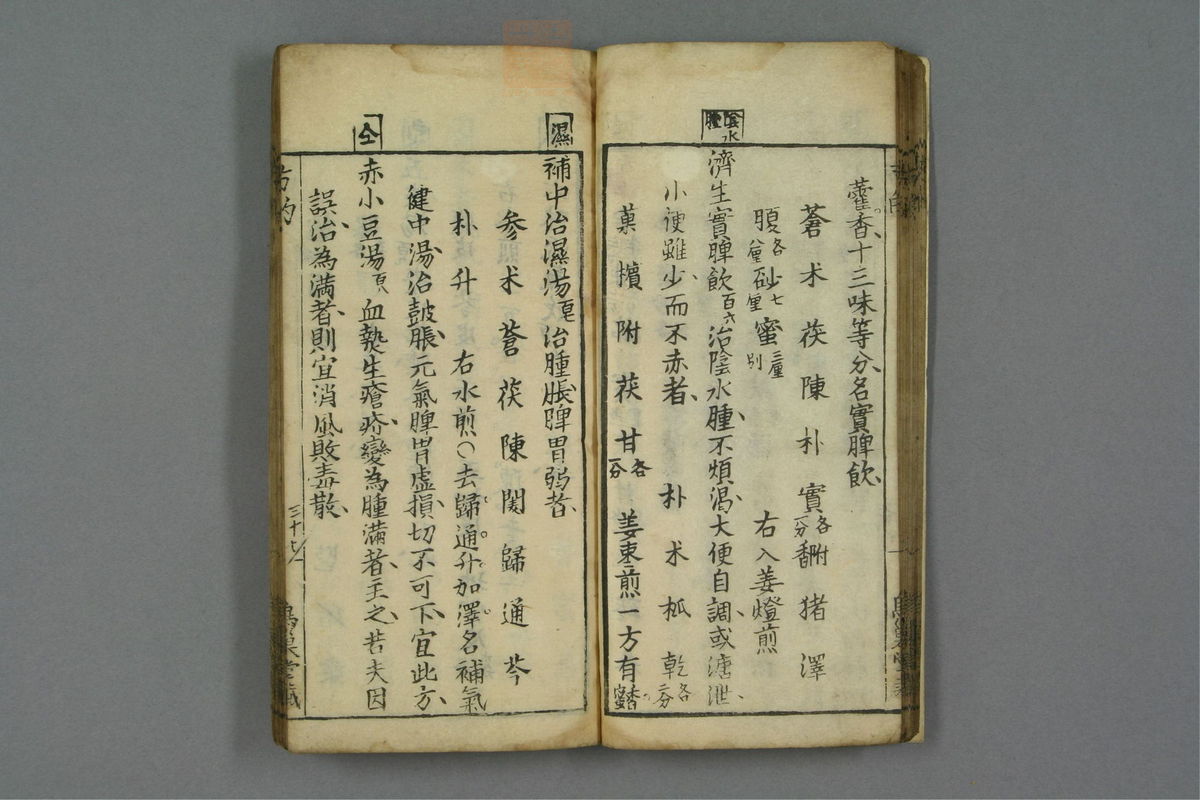 藿香十三味等分名實脾飲
蒼 术 茯 陳 朴 實各一分 附 猪 澤
腹各八厘 砂七厘 蜜三厘別 右入姜燈煎
陰水腫
濟生實脾飲百六 治陰水腫不煩渴大便自調或溏泄
小便雖少而不赤者 朴 术 瓜 乾各一分
菓 檳 附 茯 甘各一分 姜棗煎一方有香蜜
濕
補中治濕湯百七 治腫脹脾胃弱者
參 术 蒼 茯 陳 関 歸 通 芩
朴 升 右水煎○去歸通升加澤名補氣
健中湯治皷脹元氣脾胃虛損切不可下宜此方
仝
赤小豆湯百八 血熱生瘡疥變為腫滿者主之若夫因
誤治為滿者則宜消風敗毒散
方的
三十七